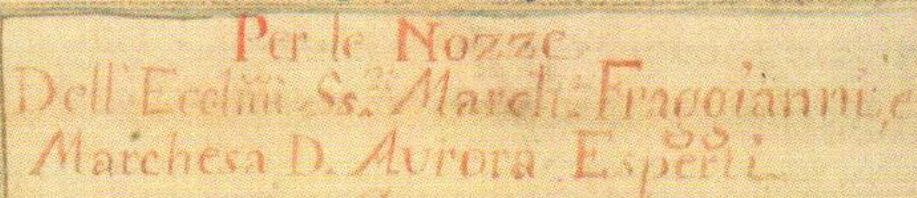 Per le Nozze
Dell' Ecclmi Ss.ri March: Fraggianni, e
Marchesa D. Aurora Esperti